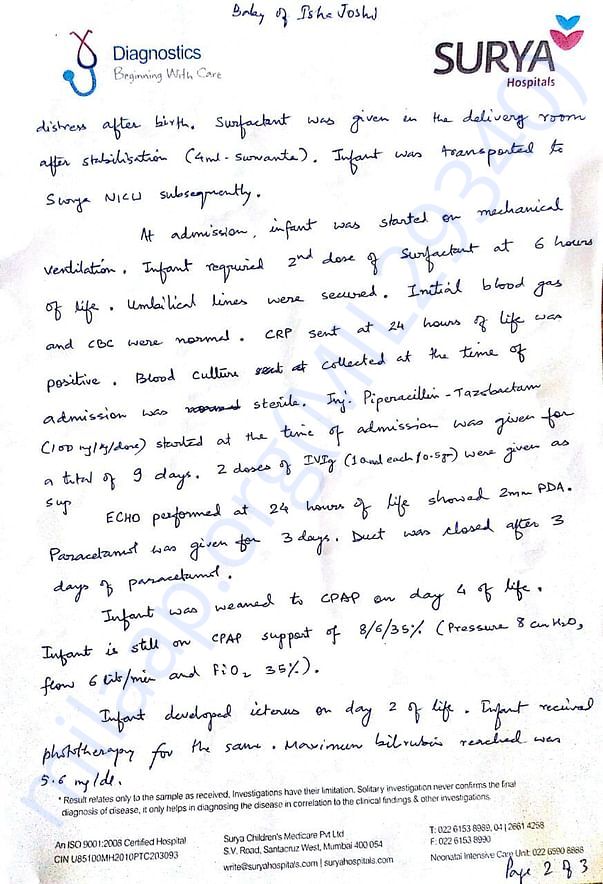 Baby of Isha Joshi
Diagnostics
Beginning With Care
SURYA
Hospitals
distress after birth. Surfactant was given in the delivery room
after stabilisation (4ml - survanta). Infant was transported to
Surya NICU subsequently.
At admission, infant was started on mechanical
ventilation. Infant required 2nd dose of Surfactant at 6 hours
of life. Umbilical lines were secured. Initial blood gas
and CBC were normal. CRP sent at 24 hours of life was
positive. Blood culture sent at collected at the time of
admission was sterile. Inj. Piperacillin - Tazobactam
(100 mg/kg/dose) started at the time of admission was given for
a total of 9 days. 2 doses of IVIg (10ml each / 0.5gm) were given as
sup
ECHO performed at 24 hours of life showed 2mm PDA.
Paracetamol was given for 3 days. Duct was closed after 3
days of paracetamol.
Infant was weaned to CPAP on day 4 of life.
Infant is still on CPAP support of 8/6/35% (Pressure 8 cm H2O,
flow 6 lits/min and FiO2 35%).
Infant developed icterus on day 2 of life. Infant received
phototherapy for the same. Maximum bilirubin reached was
5.6 mg/dl.
* Result relates only to the sample as received. Investigations have their limitation. Solitary investigation never confirms the final
diagnosis of disease, it only helps in diagnosing the disease in correlation to the clinical findings & other investigations.
An ISO 9001:2008 Certified Hospital
CIN U85100MH2010PTC203093
Surya Children's Medicare Pvt Ltd
S.V. Road, Santacruz West, Mumbai 400 054
write@suryahospitals.com | suryahospitals.com
T: 022 6153 8989, 04 | 2661 4258
F: 022 6153 8990
Neonatal Intensive Care Unit: 022 6590 8888
Page 2 of 3
milaap.org(MIL29340)